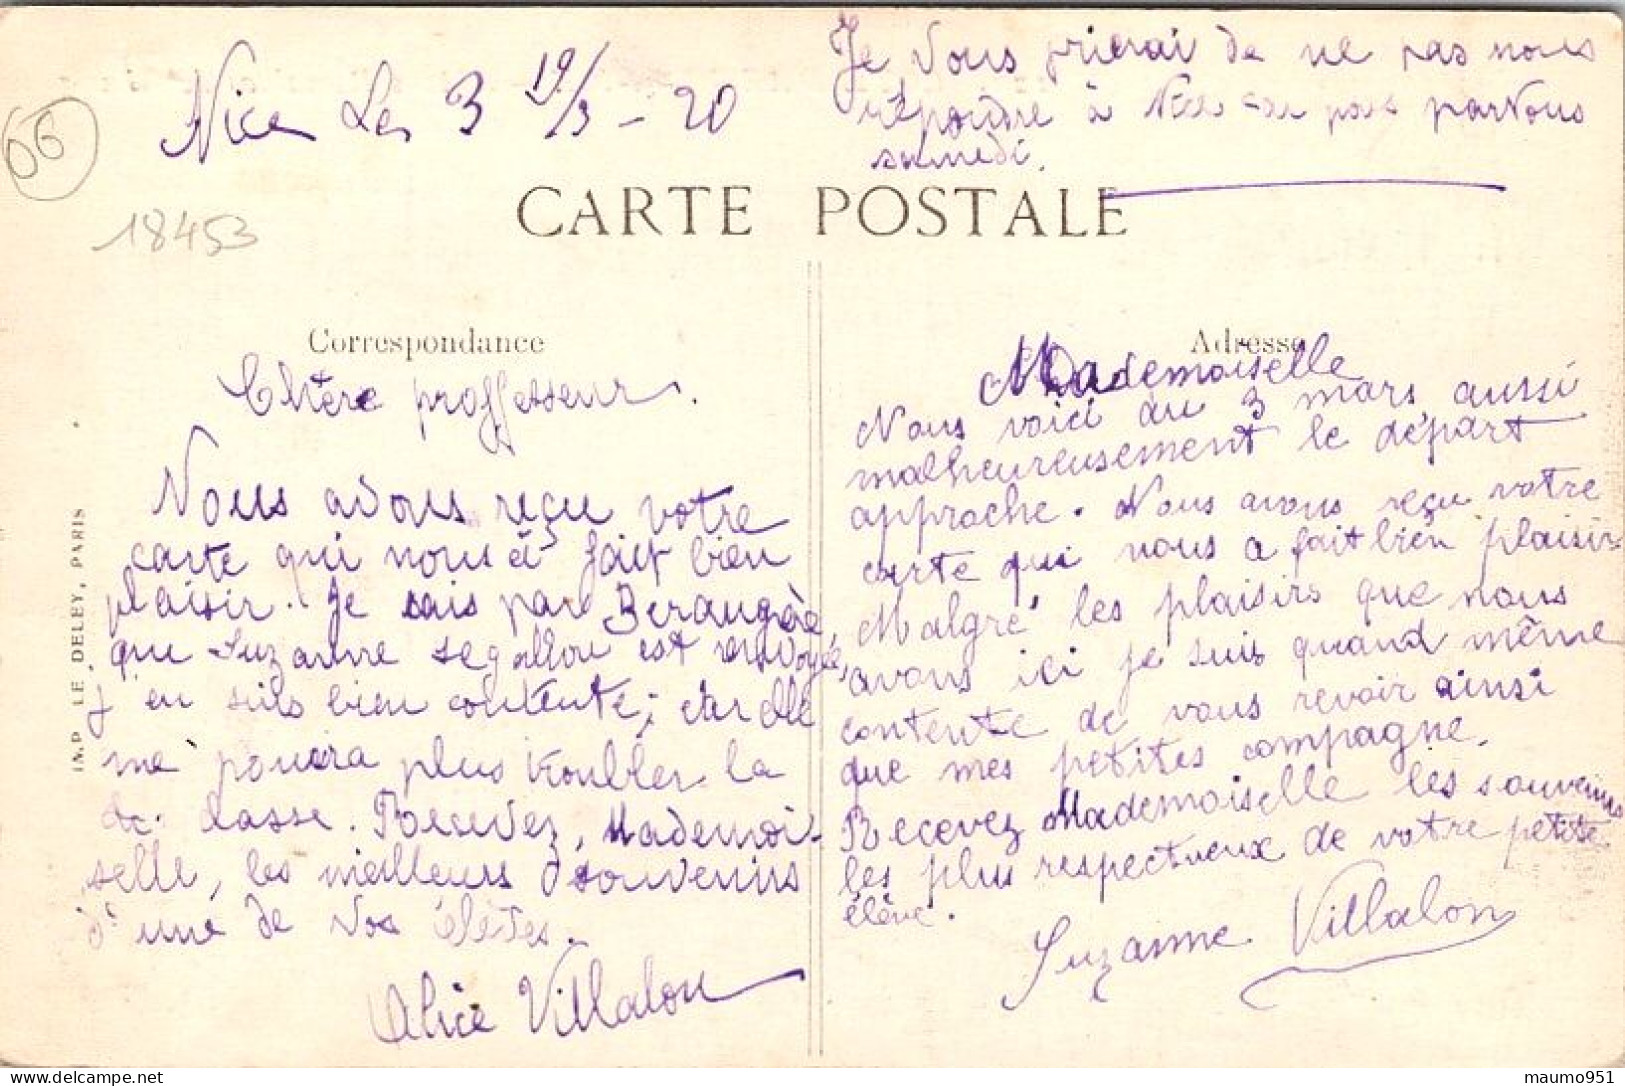 66
18453
Nice Le 3 19/3 - 20
Je Vous prierai de ne pas nous
répondre à Nice car nous partons
samedi.
CARTE POSTALE
Correspondance
Chère proffesseur.
Nous avons reçu votre
carte qui nous à fait bien
plaisir. Je sais par Berangère
que Suzanne segallou est renvoyée,
j'en suis bien contente; car elle
me pourra plus troubler la
classe. Recevez, Mademoi-
selle, les meilleurs souvenirs
d'une de vos élèves.
Alice Villalon
Adresse
Mademoiselle
Nous voici au 3 mars aussi
malheureusement le départ
approche. Nous avons reçu votre
carte qui nous a fait bien plaisir
Malgré les plaisirs que nous
avons ici je suis quand même
contente de vous revoir ainsi
que mes petites compagne.
Recevez Mademoiselle les souvenirs
les plus respectueux de votre petite
élève.
Suzanne Villalon
IMP. LE DELEY, PARIS
maumo951